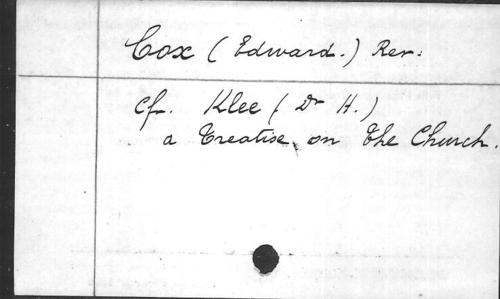 Cox (Edward.) Rev:
Cf. Klee (Dr H.)
a Treatise on the Church.